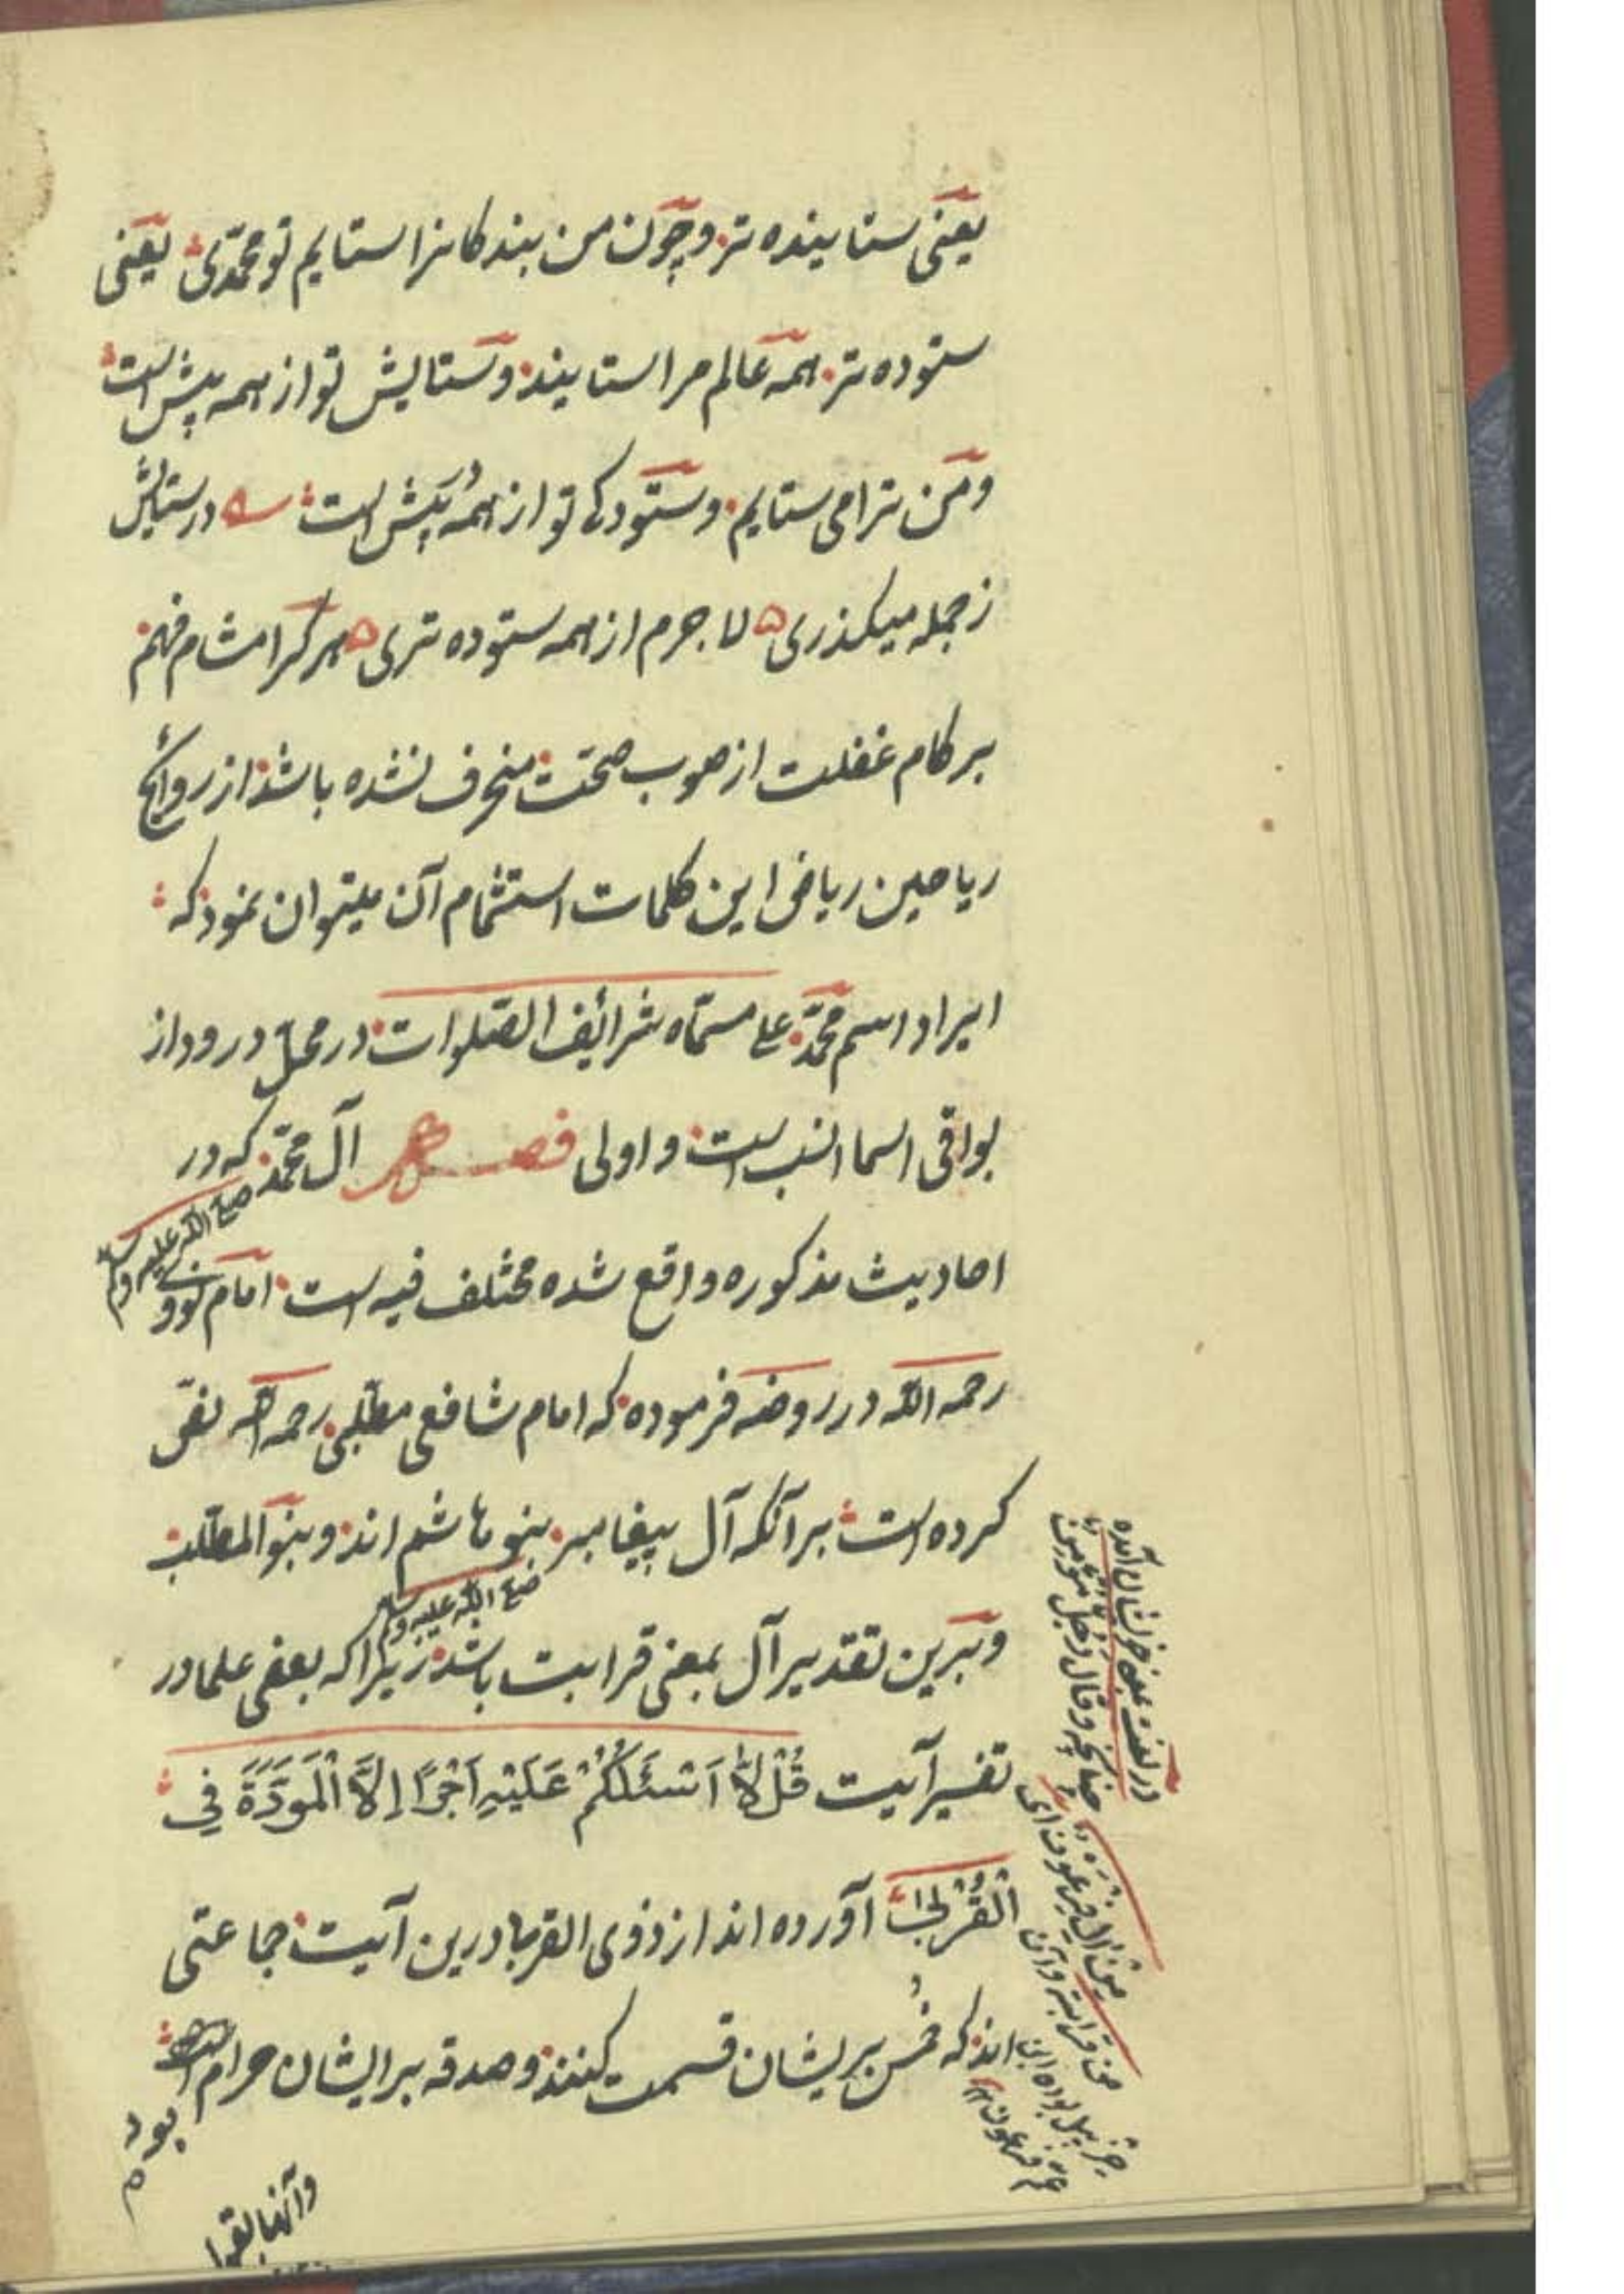 یعنی ستاینده تر و چون من بندکانرا ستایم تو محمّدی یعنی
ستوده تر همه عالم مرا ستایند و ستایش تو از همه پیش است
و من ترا می ستایم و ستودکی تو از همه پیش است در ستایش
ز جمله میکذری لا جرم از همه ستوده تری هر کرا مشام فهم
بر کام غفلت از صوب صحّت منحرف نشده باشد از روائح
ریاحین ریاض این کلمات استشمام آن میتوان نمود که
ایراد اسم محمّد علی مسمّاه شرائف الصّلوات در محلّ درود از
بواقی اسما انسب است و اولی فصل آل محمّد که در
صلی الله علیه وسلم
احادیث مذکوره واقع شده مختلف فیه است امام نووی
رحمه الله در روضه فرموده که امام شافعی مطّلبی رحمه الله نصّ
کرده است بر آنکه آل پیغامبر بنو هاشم اند و بنو المطّلب
صلی الله علیه وسلم
و برین تقدیر آل بمعنی قرابت باشد زیرا که بعضی علما در
تفسیر آیت قُلْ لَّا اَسْئَلُكُمْ عَلَيْهِ اَجْرًا اِلَّا الْمَوَدَّةَ فِي
الْقُرْبٰى آورده اند از ذوی القربا درین آیت جماعتی
اند که خمس بریشان قسمت کنند و صدقه بر ایشان حرام
بود
وآنها بقرا
چنانچه وقال رجل مؤمن
من آل فرعون ای
من قرابته وآن
حزبیل بوده ابن
عم فرعون